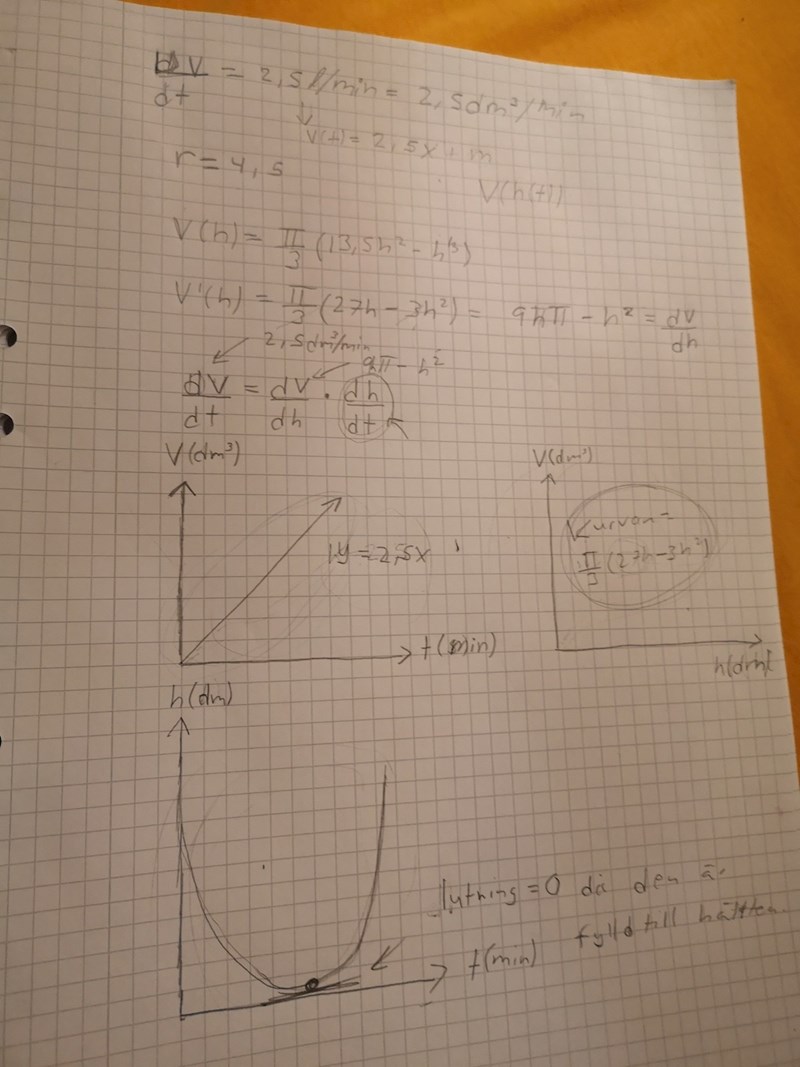 dV/dt = 2,5 l/min = 2,5dm³/min
↓ V(t) = 2,5x + m
r = 4,5
V(h(t))
V(h) = π/3 (13,5h² - h³)
V'(h) = π/3 (27h - 3h²) = 9hπ - h² = dV/dh
2,5dm³/min
9π - h²
dV/dt = dV/dh · dh/dt
V(dm³)
y = 2,5x
t(min)
V(dm³)
Kurvan =
π/3 (27h - 3h²)
h(dm)
h(dm)
lutning = 0 då den är
fylld till hälften.
t(min)